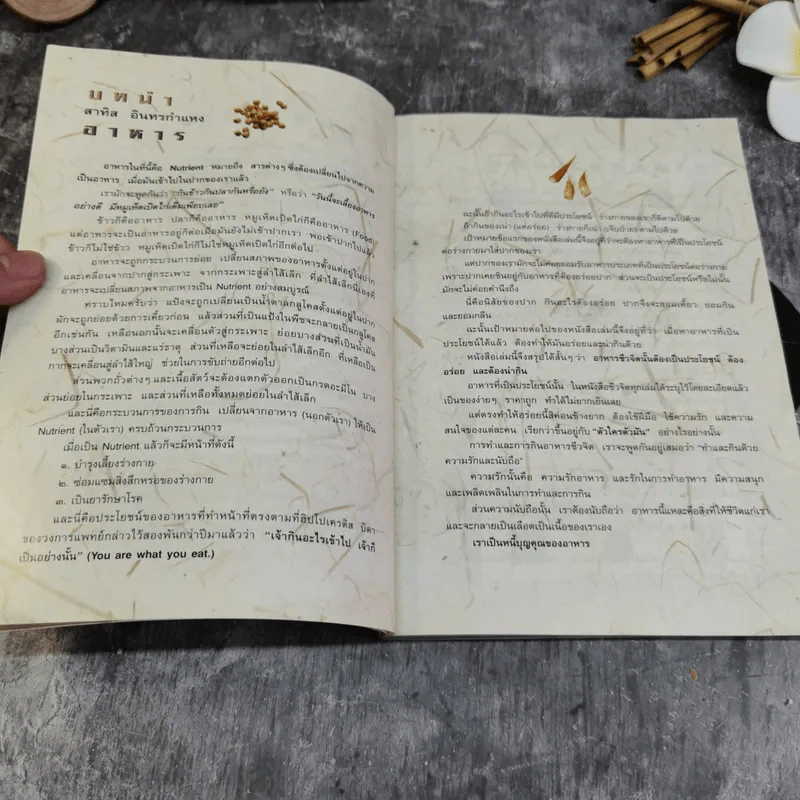 บทนำ
สาทิส อินทรกำแหง
อาหาร
อาหารในที่นี้คือ Nutrient หมายถึง สารต่างๆ ซึ่งต้องเปลี่ยนไปจากความ
เป็นอาหาร เมื่อมันเข้าไปในปากของเราแล้ว
เรามักจะพูดกันว่า "กินข้าวกินปลากันหรือยัง" หรือว่า "วันนี้จะเลี้ยงอาหาร
อย่างดี มีหมูเห็ดเป็ดไก่เต็มเพียบเลย"
ข้าวก็คืออาหาร ปลาก็คืออาหาร หมูเห็ดเป็ดไก่ก็คืออาหาร (Food)
แต่อาหารจะเป็นอาหารอยู่ก็ต่อเมื่อมันยังไม่เข้าปากเรา พอเข้าปากไปแล้ว
ข้าวก็ไม่ใช่ข้าว หมูเห็ดเป็ดไก่ก็ไม่ใช่หมูเห็ดเป็ดไก่อีกต่อไป
อาหารจะถูกกระบวนการย่อย เปลี่ยนสภาพของอาหารตั้งแต่อยู่ในปาก
และเคลื่อนจากปากสู่กระเพาะ จากกระเพาะสู่ลำไส้เล็ก ที่ลำไส้เล็กนี้เองที่
อาหารจะเปลี่ยนสภาพจากอาหารเป็น Nutrient อย่างสมบูรณ์
ทราบไหมครับว่า แป้งจะถูกเปลี่ยนเป็นน้ำตาลกลูโคสตั้งแต่อยู่ในปาก
มักจะถูกย่อยด้วยการเคี้ยวก่อน แล้วส่วนที่เป็นแป้งในพืชจะกลายเป็นกลูโคส
อีกเช่นกัน เหลือนอกนั้นจะเคลื่อนตัวสู่กระเพาะ ย่อยบางส่วนที่เป็นน้ำมัน
บางส่วนเป็นวิตามินและแร่ธาตุ ส่วนที่เหลือจะย่อยในลำไส้เล็กอีก ที่เหลือเป็น
กากจะเคลื่อนสู่ลำไส้ใหญ่ ช่วยในการขับถ่ายอีกต่อไป
ส่วนพวกถั่วต่างๆ และเนื้อสัตว์จะต้องแตกตัวออกเป็นกรดอะมิโน บาง
ส่วนย่อยในกระเพาะ และส่วนที่เหลือทั้งหมดย่อยในลำไส้เล็ก
และนี่คือกระบวนการของการกิน เปลี่ยนจากอาหาร (นอกตัวเรา) ให้เป็น
Nutrient (ในตัวเรา) ครบถ้วนกระบวนการ
เมื่อเป็น Nutrient แล้วก็จะมีหน้าที่ดังนี้
๑. บำรุงเลี้ยงร่างกาย
๒. ซ่อมแซมสิ่งสึกหรอของร่างกาย
๓. เป็นยารักษาโรค
และนี่คือประโยชน์ของอาหารที่ทำหน้าที่ตรงตามที่ฮิปโปเครติส บิดา
ของวงการแพทย์กล่าวไว้สองพันกว่าปีมาแล้วว่า "เจ้ากินอะไรเข้าไป เจ้าก็
เป็นอย่างนั้น" (You are what you eat.)
ฉะนั้นถ้ากินอะไรเข้าไปที่ดีมีประโยชน์ ร่างกายของเราก็ดีตามไปด้วย
ถ้ากินของเน่า (แต่อร่อย) ร่างกายก็เน่า
เป้าหมายข้อแรกของหนังสือเล่มนี้จึงอยู่ที่ว่าจะต้องหาอาหารที่เป็นประโยชน์
ต่อร่างกายมาใส่ปากของเรา
แต่ปากของเรามักจะไม่ค่อยยอมรับอาหารประเภทที่เป็นประโยชน์ต่อร่างกาย
เพราะปากเคยชินอยู่กับอาหารที่ต้องอร่อยปาก ส่วนจะเป็นประโยชน์หรือไม่นั้น
มักจะไม่ค่อยคำนึงถึง
นี่คือนิสัยของปาก กินอะไรต้องอร่อย ปากจึงจะยอมเคี้ยว ยอมกิน
และยอมกลืน
ฉะนั้นเป้าหมายต่อไปของหนังสือเล่มนี้จึงอยู่ที่ว่า เมื่อหาอาหารที่เป็น
ประโยชน์ได้แล้ว ต้องทำให้มันอร่อยและน่ากินด้วย
หนังสือเล่มนี้จึงสรุปได้สั้นๆ ว่า อาหารชีวจิตนั้นต้องเป็นประโยชน์ ต้อง
อร่อย และต้องน่ากิน
อาหารที่เป็นประโยชน์นั้น ในหนังสือชีวจิตทุกเล่มได้ระบุไว้โดยละเอียดแล้ว
เป็นของง่ายๆ ราคาถูก ทำได้ไม่ยากเย็นเลย
แต่ตรงทำให้อร่อยนี้สิค่อนข้างยาก ต้องใช้ฝีมือ ใช้ความรัก และความ
สนใจของแต่ละคน เรียกว่าขึ้นอยู่กับ "ตัวใครตัวมัน" อย่างไรอย่างนั้น
การทำและการกินอาหารชีวจิต เราจะพูดกันอยู่เสมอว่า "ทำและกินด้วย
ความรักและนับถือ"
ความรักนั้นคือ ความรักอาหาร และรักในการทำอาหาร มีความสนุก
และเพลิดเพลินในการทำและการกิน
ส่วนความนับถือนั้น เราต้องนับถือว่า อาหารนี้แหละคือสิ่งที่ให้ชีวิตแก่เรา
และจะกลายเป็นเลือดเป็นเนื้อของเราเอง
เราเป็นหนี้บุญคุณของอาหาร